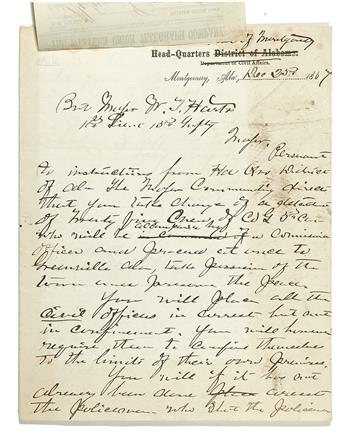 THE WESTERN UNION TELEGRAPH COMPANY
of Montgomery
Head-Quarters District of Alabama.
Department of Civil Affairs.
Montgomery, Ala., Dec 23d 1867
Bvt Major W. T. Hartz
1st Lieut 15th Infty
Major,
Persuant
to instructions from Hd Qrs District
of Ala The Major Commanding directs
that you take charge of a detachment
of twenty five
who will be in command accompanied by of a Comissioned
officer and proceed at once to
Greenville Ala, take possession of the
town and preserve the peace.
You will place all the
Civil Officers in arrest but not
in confinement. You will however
require them to confine themselves
to the limits of their own premises.
You will if it has not
already been done arrest
the Policeman who shot the